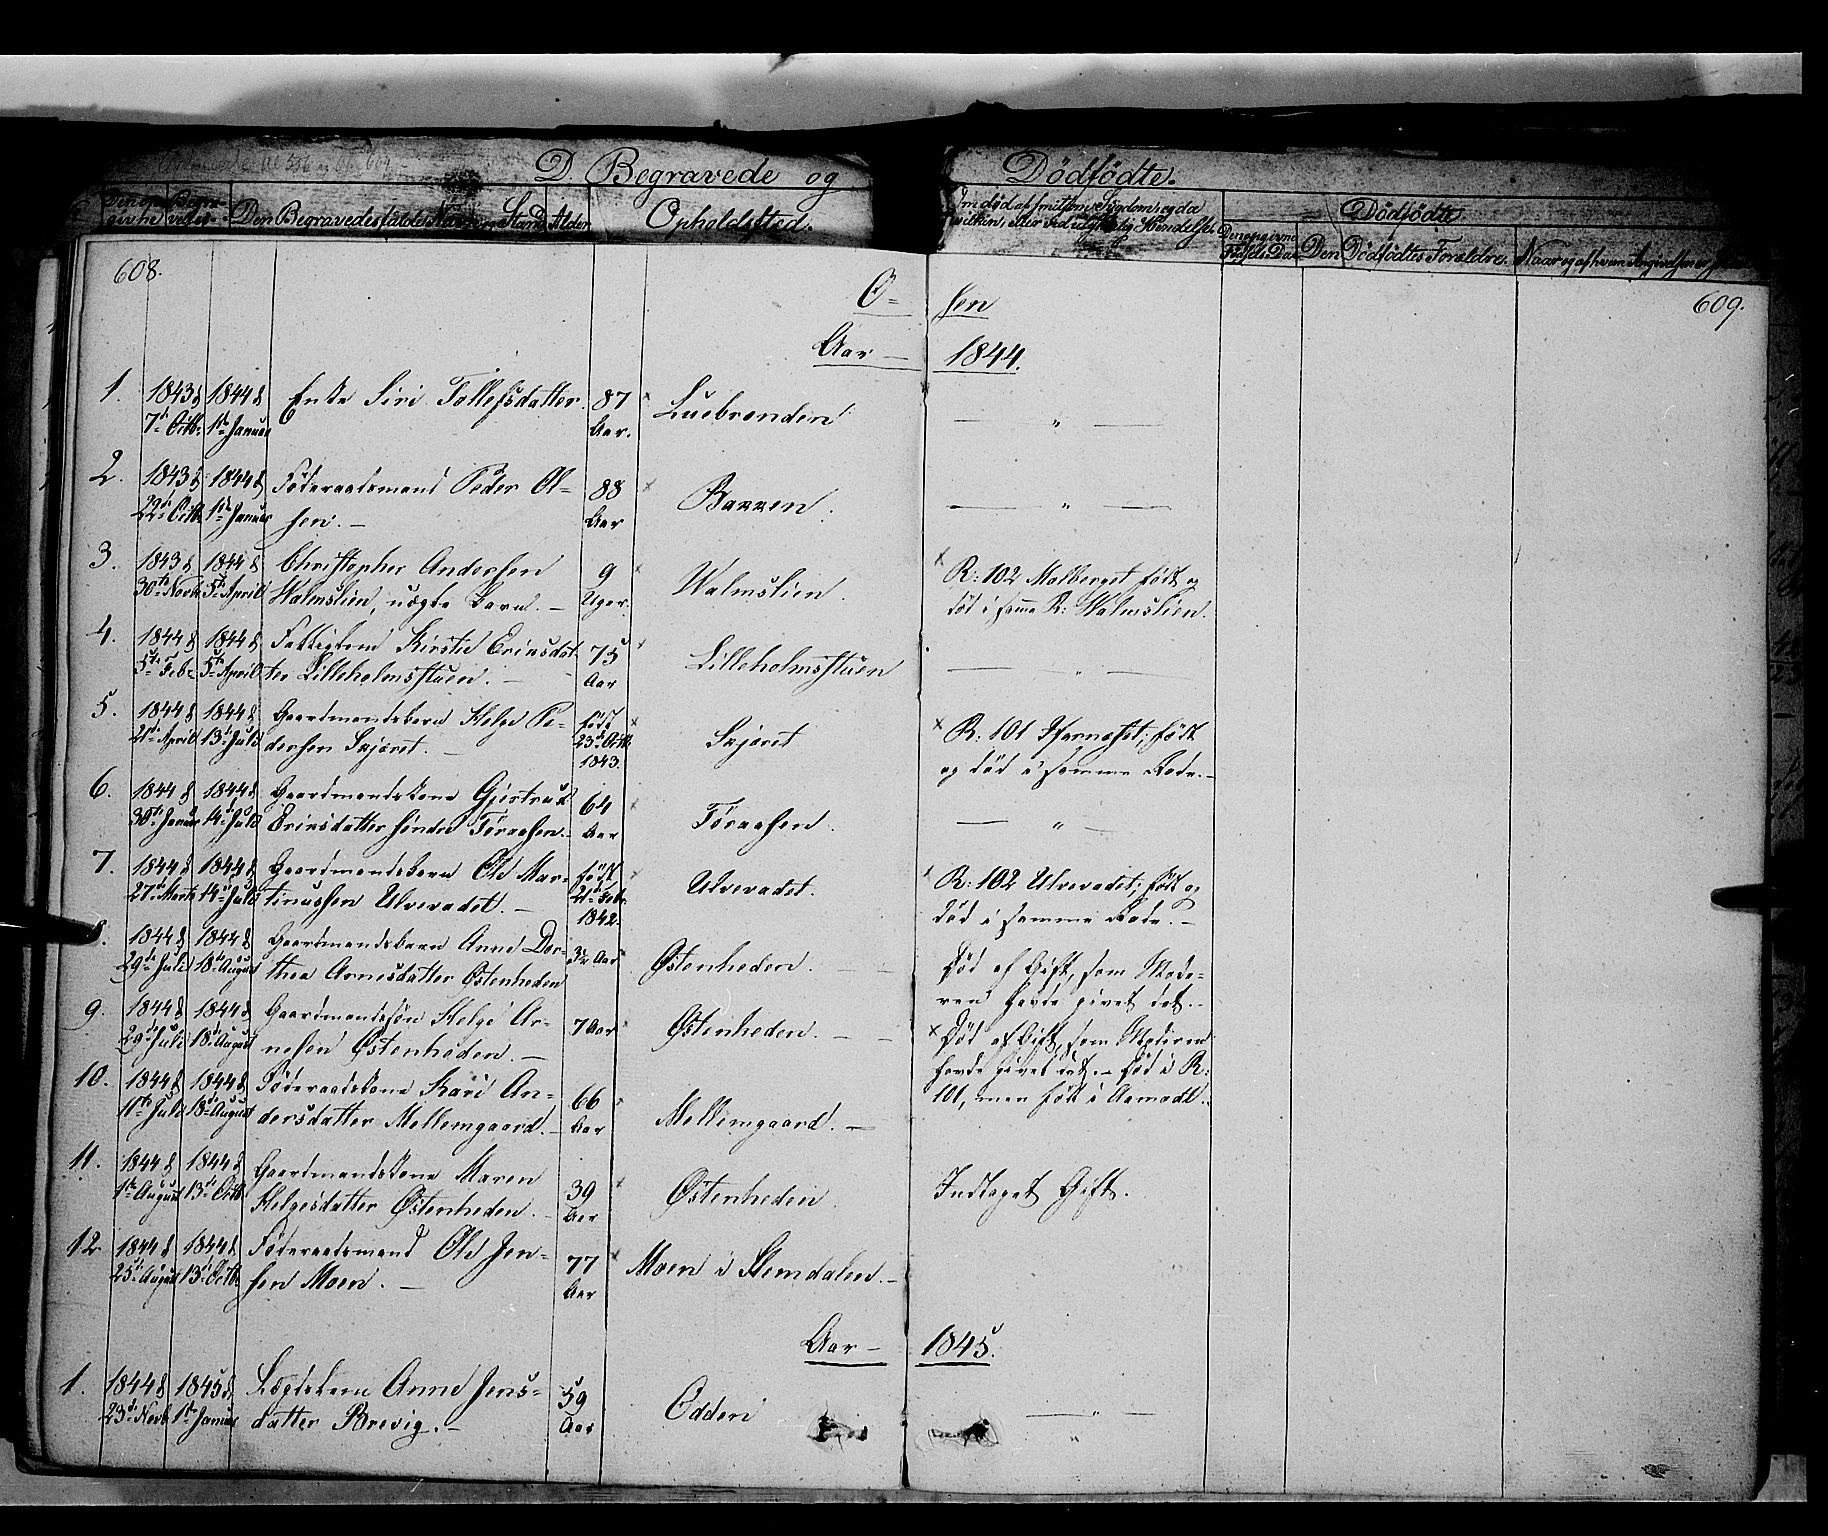 D. Begravede og Dödfödte.
Den opgivne
Begravelses-
Den Begravedes fulde Navn, Stand
Alder
Opholdssted.
Om död af smitsom Sygdom, og da
hvilken, eller ved ulykkelig Hændelse.
Dödfödte
Den opgivne
Födsels Dag
Den Dödfödtes Forældre.
Naar og af hvem
608.
609.
O- sen
Aar - 1844.
1.
1843 d
7de Octb:
1844 d
1ste Januar
Enke Siri Tollefsdatter.
87
Aar.
Luebrenden
— " —
2.
1843 d
22de Octb
1844 d
1ste Januar
Föderaadsmand Peder Ol-
sen. —
88
Aar
Bakken.
— " —
3.
1843 d
30te Novb
1844 d
5te April
Christopher Andersen
Halmslien, uægte Barn. —
9
Uger.
Halmslien.
R: 102 Malberget född og
död i samme R: Halmslien.
4.
1844 d
5te Feb:
1844 d
5te April
Fattiglem Kirstie Eriksdat-
ter Lilleholmsstuen. —
75
Aar
Lilleholmsstuen
— " —
5.
1844 d
21de April
1844 d
13de Juli
Gaardmandsbarn Helge Pe-
dersen Skjæret. —
født
23de Octb
1843.
Skjæret
R: 101 Ifarnæset; född
og död i samme Rode. —
6.
1844 d
30te Januar
1844 d
14de Juli
Gaardmandskone Gjertrud
Eriksdatter söndre Töraasen. —
64
Aar
Töraasen.
— " —
7.
1844 d
27de Marts
1844 d
14de Juli
Gaardmandsbarn Ole Mar-
tinussen Ulvevadet. —
født
21de Feb:
1842.
Ulvevadet.
R: 102 Ulvevadet; född og
död i samme Rode. —
8.
1844 d
29de Juli
1844 d
18de August
Gaardmandsbarn Anne Dor-
thea Arnesdatter Østenheden
3½ Aar
Østenheden. —
Död af Gift, som Mode-
ren havde givet det. —
9.
1844 d
29de Juli
1844 d
18de August
Gaardmandssön Helge Ar-
nesen Østenheden. —
7 Aar
Østenheden. —
Död af Gift, som Moderen
havde givet det. — död i R:
101, men född i Aamodt. —
10.
1844 d
11te Juli
1844 d
18de August
Föderaadskone Kari An-
dersdatter Mellemgaard. —
66
Aar
Mellemgaard. —
11.
1844 d
1ste August
1844 d
13de Octb.
Gaardmandskone Maren
Helgesdatter Østenheden. —
39
Aar
Østenheden.
Indtaget Gift.
12
1844 d
25de August
1844 d
13de Octb.
Föderaadsmand Ole Jen-
sen Moen. —
77
Aar
Moen i Slemdalen. —
Aar — 1845.
1.
1844 d
23de Novb.
1845 d.
1ste Januar
Lægdslem Anne Jens-
datter Brevig. —
59
Aar
Odden
— " —